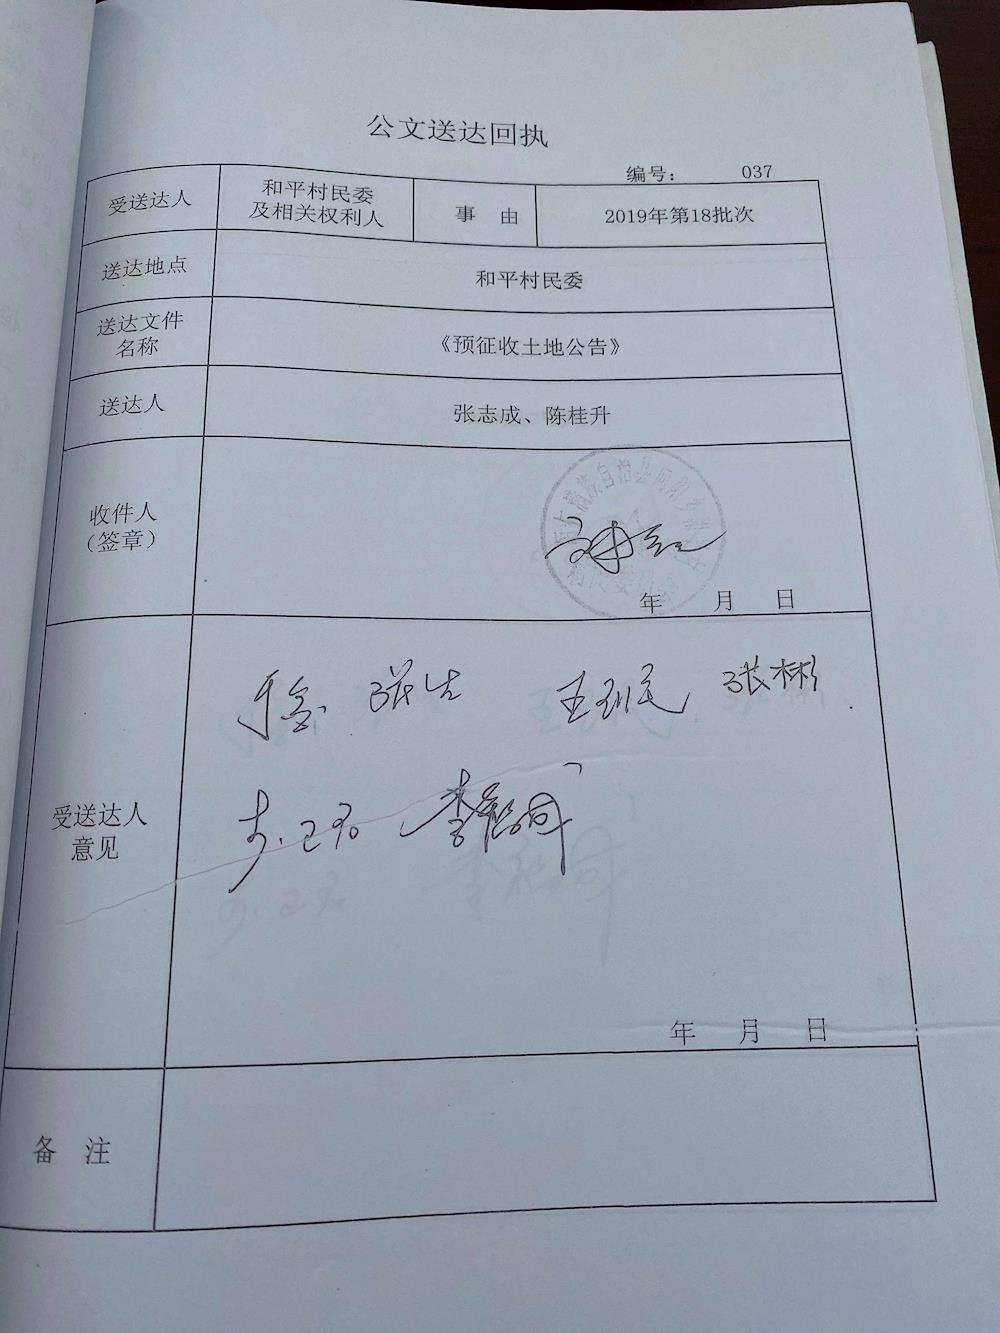 公文送达回执
编号： 037
受送达人
和平村民委
及相关权利人
事 由
2019年第18批次
送达地点
和平村民委
送达文件
名称
《预征收土地公告》
送达人
张志成、陈桂升
收件人
（签章）
满族自治县
年 月 日
张彬
李
受送达人
意见
年 月 日
备 注